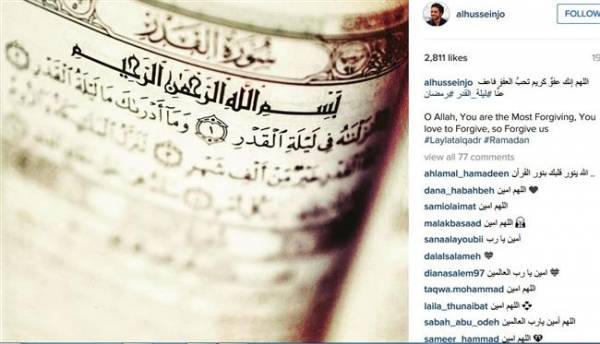 سورة القدر
بسم الله الرحمن الرحيم
أنزلناه في ليلة القدر ۝١ وما أدرىك ما ليلة القدر
القدر خير من ألف شهر
alhusseinjo
FOLLOW
2,811 likes
alhusseinjo اللهم إنك عفوٌ كريم تحبُّ العفو فاعف
عنّا #ليلة_القدر #رمضان
O Allah, You are the Most Forgiving, You
love to Forgive, so Forgive us
#Laylatalqadr #Ramadan
view all 77 comments
ahlamal_hamadeen الله ينور قلبك بنور القرآن ..
dana_habahbeh اللهم امين 🖤
samiolaimat اللهم امين
malakbasaad اللهم امين
sanaalayoubii أمين يا رب
dalalsalameh 🖤
dianasalem97 امين يا رب العالمين 🖤
taqwa.mohammad اللهم امين
laila_thunaibat اللهم امين
sabah_abu_odeh اللهم أمين يارب العالمين
sameer_hammad اللهم امين